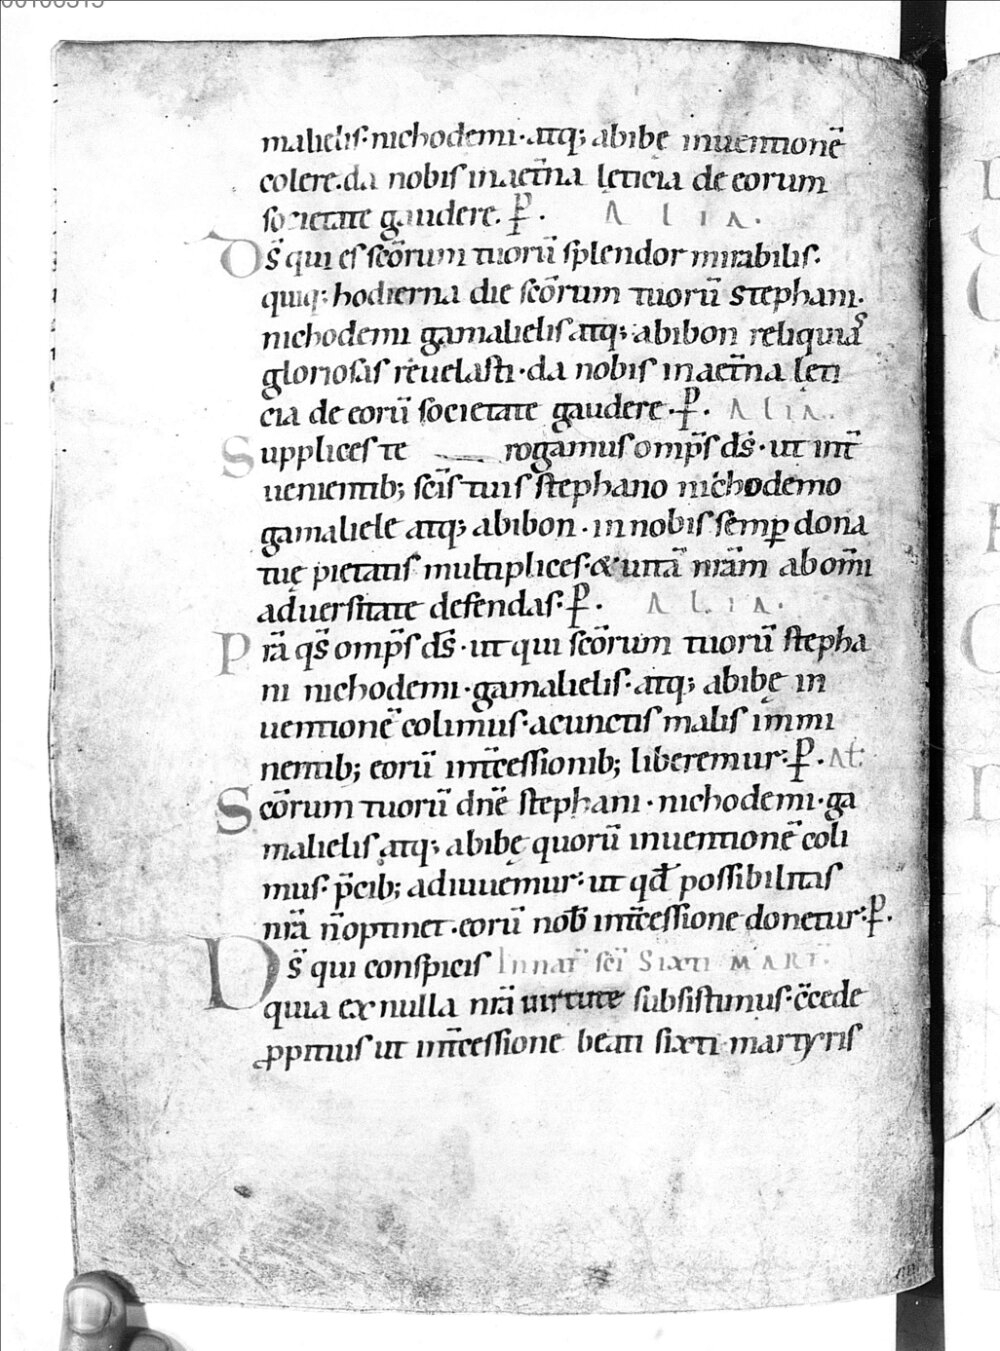 malielis· nichodemi· atq; abibę inuentionē
colere. da nobis in aet̄na lęticia de eorum
societate gaudere. P̱ · ALIA·
D̄s qui es sc̄orum tuorū splendor mirabilis·
quiq; hodierna die sc̄orum tuorū stephani·
nichodemi gamalielis atq; abibon reliquias
gloriosas reuelasti· da nobis in aet̄na lęti
cia de eorū societate gaudere· P̱ · ALIA·
Supplices te rogamus omp̄s d̄s· ut int̄
uenientib; sc̄is tuis stephano nichodemo
gamaliele atq; abibon· in nobis semp̱ dona
tuę pietatis multiplices· & uitā nr̄am ab om̄i
aduersitate defendas· P̱ · ALIA·
Pr̄a q̄s omp̄s d̄s· ut qui sc̄orum tuorū stepha
ni nichodemi· gamalielis· atq; abibę in
uentionē colimus· a cunctis malis immi
nentib; eorū int̄cessionib; liberemur· P̱ · Al̄:
Sc̄orum tuorū dn̄e stephani· nichodemi· ga
malielis atq; abibę quorū inuentionē coli
mus· p̄cib; adiuuemur· ut qd̄ possibilitas
nr̄a n̄ optinet· eorū nob̄ int̄cessione donetur· P̱ ·
D̄s qui conspicis In nat̄ sc̄i Sixti MART̄·
quia ex nulla nr̄a uirtute subsistimus· c̄cede
ꝓpitius ut int̄cessione beati sixti martyris